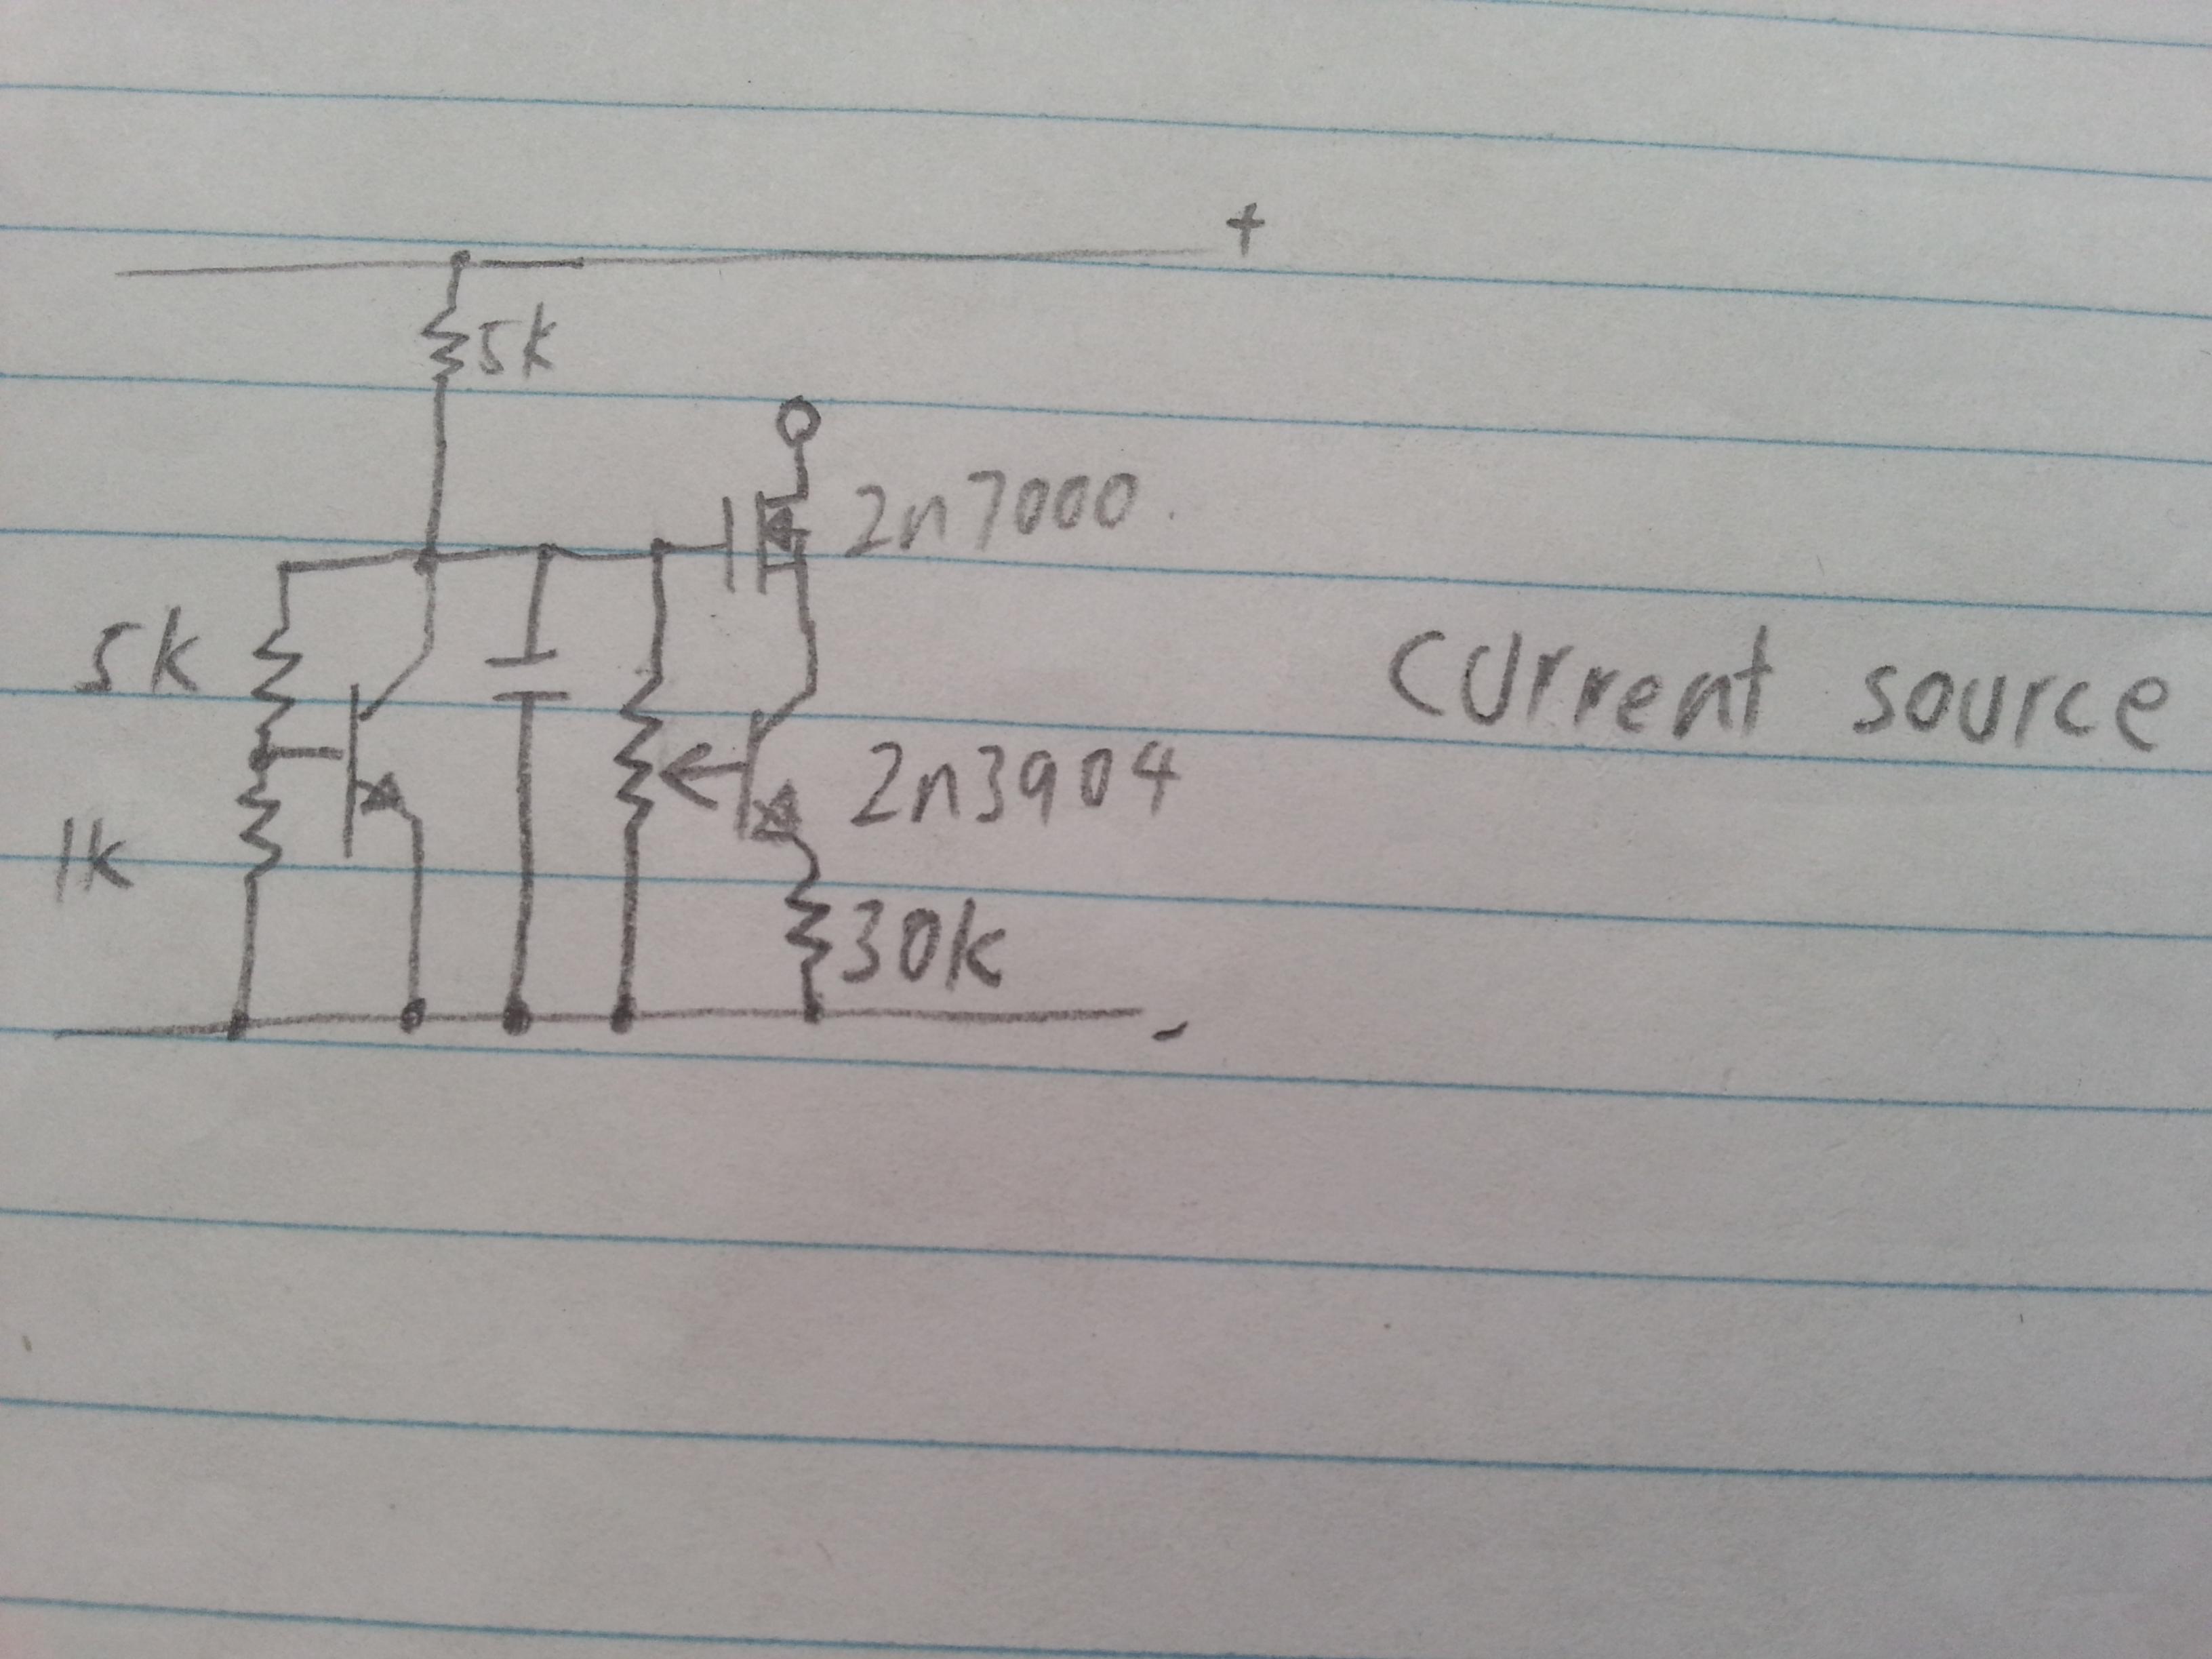 +
5k
2n7000.
5k
current source
2n3904
1k
30k
-